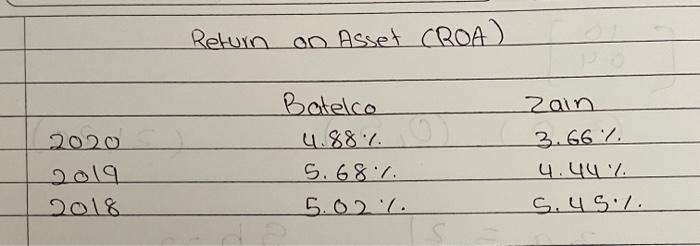 Return on Asset (ROA)
Batelco Zain
2020 4.88% 3.66%
2019 5.68% 4.44%
2018 5.02% 5.45%